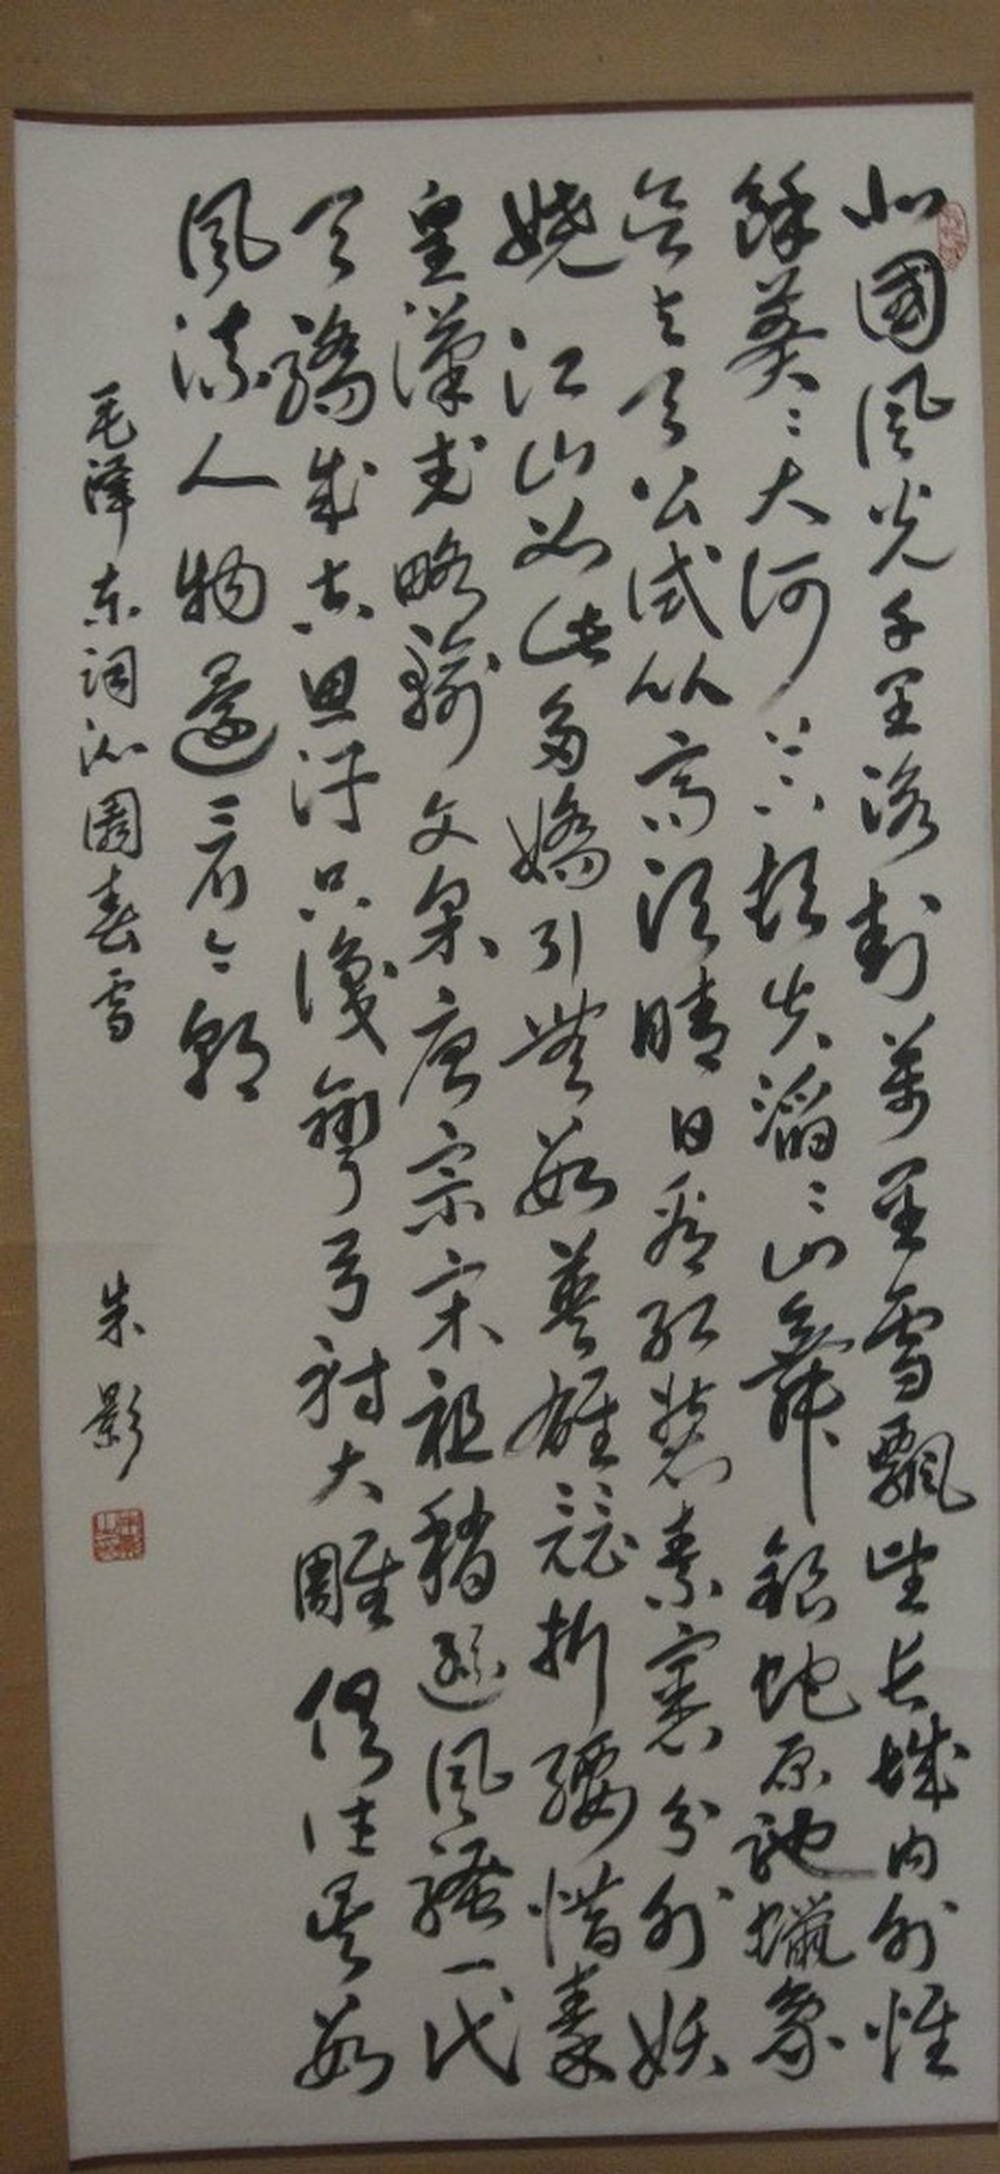 北國風光千里冰封萬里雪飄望长城内外惟
餘莽〻大河上下頓失滔〻山舞銀蛇原馳蠟象
欲与天公試比高須晴日看紅裝素裹分外妖
嬈江山如此多嬌引無數英雄競折腰惜秦
皇漢武略輸文采唐宗宋祖稍遜風騷一代
天驕成吉思汗只識彎弓射大雕俱往矣數
風流人物還看今朝
毛澤东詞沁園春雪 朱影